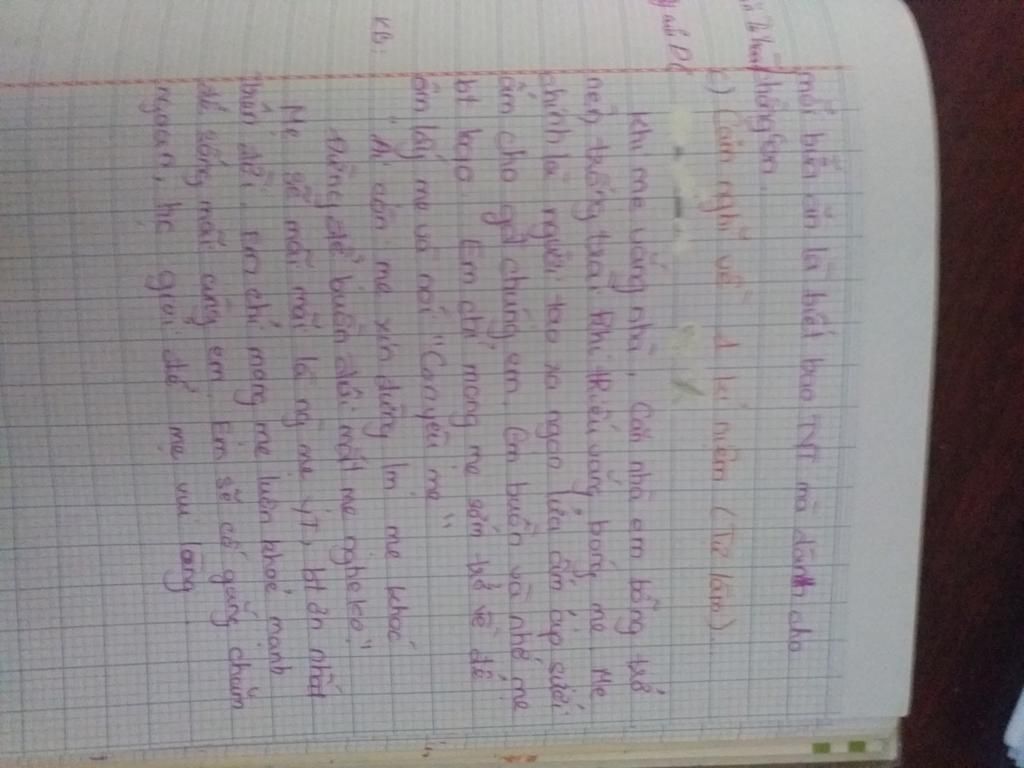 mỗi bữa ăn là biết bao TNT mà dành cho
chồng con.
c) Cảm nghĩ về 1 kỉ niệm (Tự làm).
Khi mẹ vắng nhà, Căn nhà em bỗng trở
nên trống trải khi thiếu vắng bóng mẹ. Mẹ
chính là người tạo ra ngọn lửa ấm áp sưởi
ấm cho gđ chúng em. Em buồn và nhớ mẹ
bt bao. Em chỉ mong mẹ sớm trở về để
ôm lấy mẹ và nói "Con yêu mẹ"
KB: "Ai còn mẹ xin đừng lm mẹ khóc
Đừng để buồn đôi mắt mẹ nghe ko"
Mẹ sẽ mãi mãi là ng mẹ yT, bt ơn nhất
trên đời. Em chỉ mong mẹ luôn khoẻ mạnh
để sống mãi cùng em. Em sẽ cố gắng chăm
ngoan, học giỏi để mẹ vui lòng